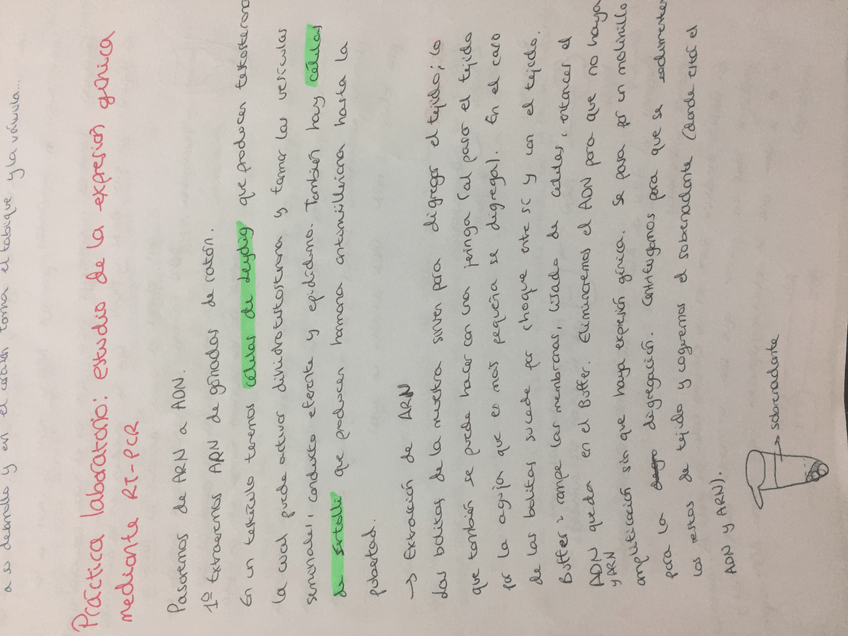 a su desarrollo y en el corazón forma el tabique y la válvula...
Práctica laboratorio: estudio de la expresión génica
mediante RT-PCR
Pasaremos de ARN a ADN.
1º Extraeremos ARN de gónadas de ratón.
En un testículo tenemos células de Leydig que producen testosterona
la cual puede activar dihidrotestosterona y formar las vesículas
seminales, conducto eferente y epidídimo. También hay células
de Sertolli que producen hormona antimülleriana hasta la
pubertad.
→ Extracción de ARN
Las bolitas de la muestra sirven para digregar el tejido; lo
que también se puede hacer con una jeringa (al pasar el tejido
por la aguja que es más pequeña se digrega). En el caso
de las bolitas sucede por choque entre sí y con el tejido.
Buffer: rompe las membranas, lisado de células, entonces el
ADN queda en el Buffer. Eliminaremos el ADN para que no haya
y ARN
amplificación sin que haya expresión génica. Se pasa por un molinillo
para la digregación. Centrifugamos para que se sedimenten
los restos de tejido y cogeremos el sobrenadante (donde está el
ADN y ARN).
→ sobrenadante